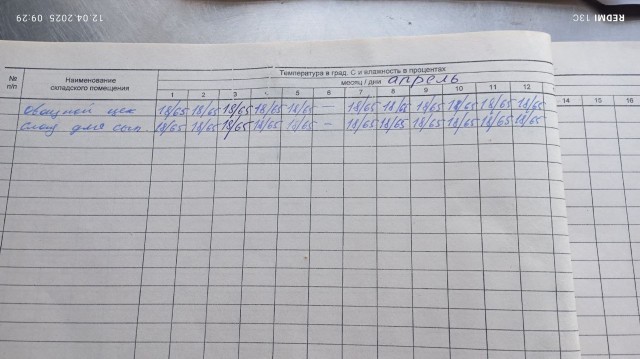 12.04.2025 09:29
REDMI 13C
Температура в град. С и влажность в процентах
месяц / дни апрель
№ п/п
Наименование складского помещения
1 2 3 4 5 6 7 8 9 10 11 12 14 15 16
Овощной цех 18/65 18/65 18/65 18/65 18/65 — 18/65 18/65 18/65 18/65 18/65 18/65
Склад для сып. 18/65 18/65 18/65 18/65 18/65 — 18/65 18/65 18/65 18/65 18/65 18/65